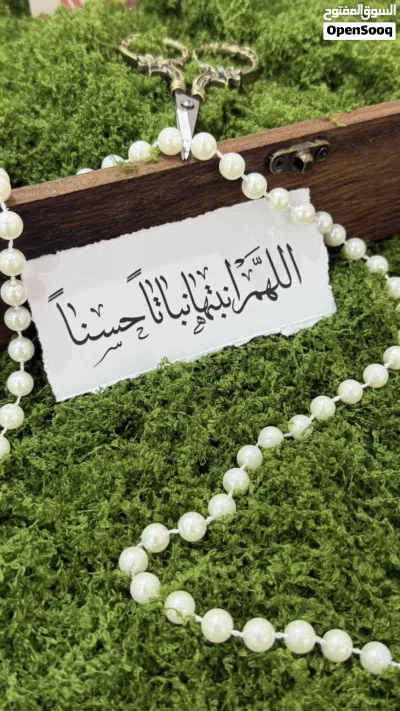 السوق المفتوح
OpenSooq
اللهم انبتها نباتاً حسناً